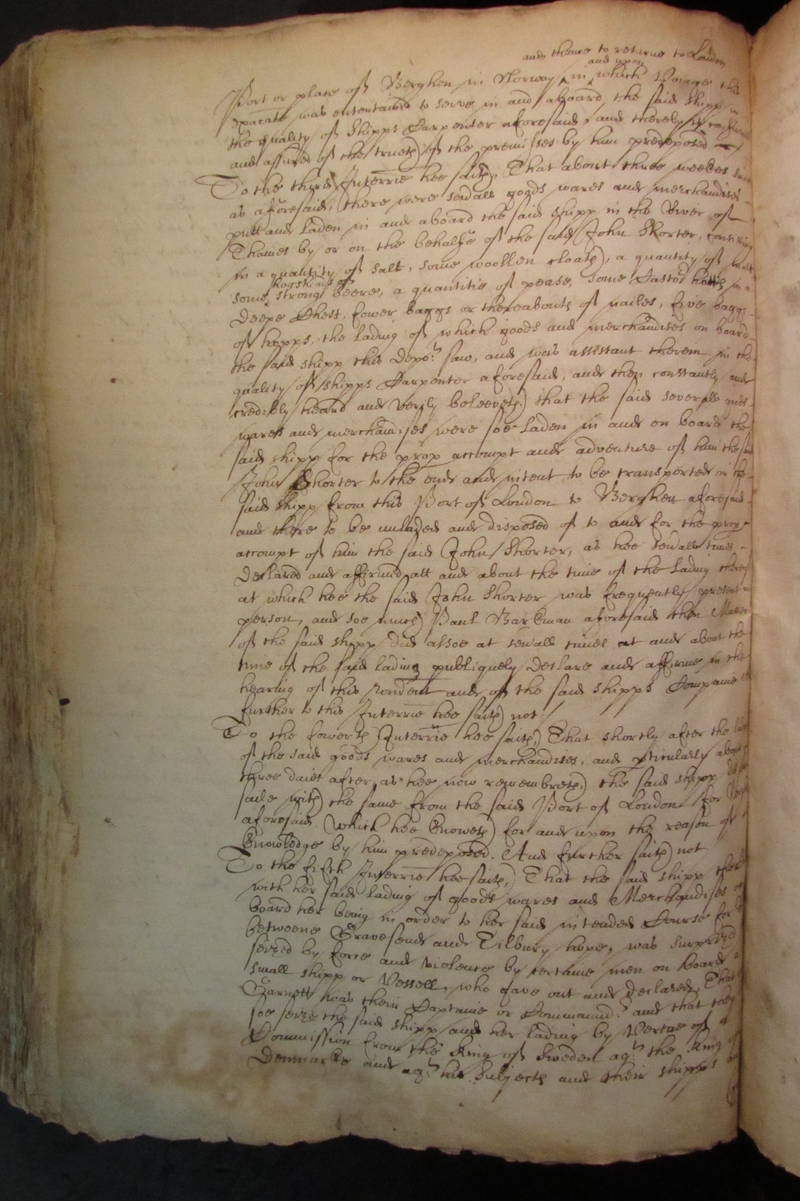 and thence to returne to London
Port or place of Berghen in Norway, and upon in which Voyage this
deponent was entertained to serve in and aboard the said shipp in
the quality of Shipps Carpenter aforesaid, and thereby
and assured of the trueth of the premisses by him predeposed
To the third Interrie hee saith, That about three weekes
as aforesaid, there were severall goods wares and merchandizes
putt and laden in and aboard the said shipp in the River of
Thames by or on the behalfe of the said John Shorter, consisting
in a quantity of salt, some woollen cloath, a quantity of
some hogsheads of strong beere, a quantitie of pease, some Castor hatts in a
deepe Chest, fower baggs or thereabouts of nailes, five baggs
of hopps, the lading of which goods and merchandizes on board
the said shipp this depot saw, and was assistant therein in the
quality of shipps Carpenter aforesaid, and then constantly and
credibly heard and verily beleeveth that the said severall
wares and merchandizes were soe laden in and on board the
said shipp for the proper accompt and adventure of him the said
John Shorter to the end and intent to be transported in the
said shipp from this Port of London to Berghen aforesaid
and there to be unladed and disposed of to and for the proper
accompt of him the said John Shorter, as hee severall times
declared and affirmed, att and about the time of the lading thereof
at which hee the said John Shorter was frequently present in
person, and soe much Paul Barkman aforesaid then Master
of the said shipp did alsoe at severall times at and about the
time of the said lading publiquely declare and affirme in the
hearing of this rendent and of the said shipps Companie
further to this Interrie hee saith not
To the fowerth Interrie hee saith, That shortly after the
of the said goods wares and merchandizes, and pticularly about
three daies after as hee now remembreth, the said shipp
saile with the same from the said Port of London for
aforesaid (which hee knoweth) for and upon the reason of
knowledge by him predeposed. And further saith not
To the fifth Interrie hee saith, That the said shipp
with her said lading of goods wares and Merchandizes
board her being in order to her said intended Course for
betweene Gravesend and Tilbury hope, was surprized
seized by force and violence by certaine men on board
small shipp or Vessell, who gave out and declared, That
Garnett was their Captaine or Commandr and that they
soe seize the said shipp and her lading by Vertue of
Commission from the King of Sweden agt the King of
Denmarke and agt his Subjects and their shipps